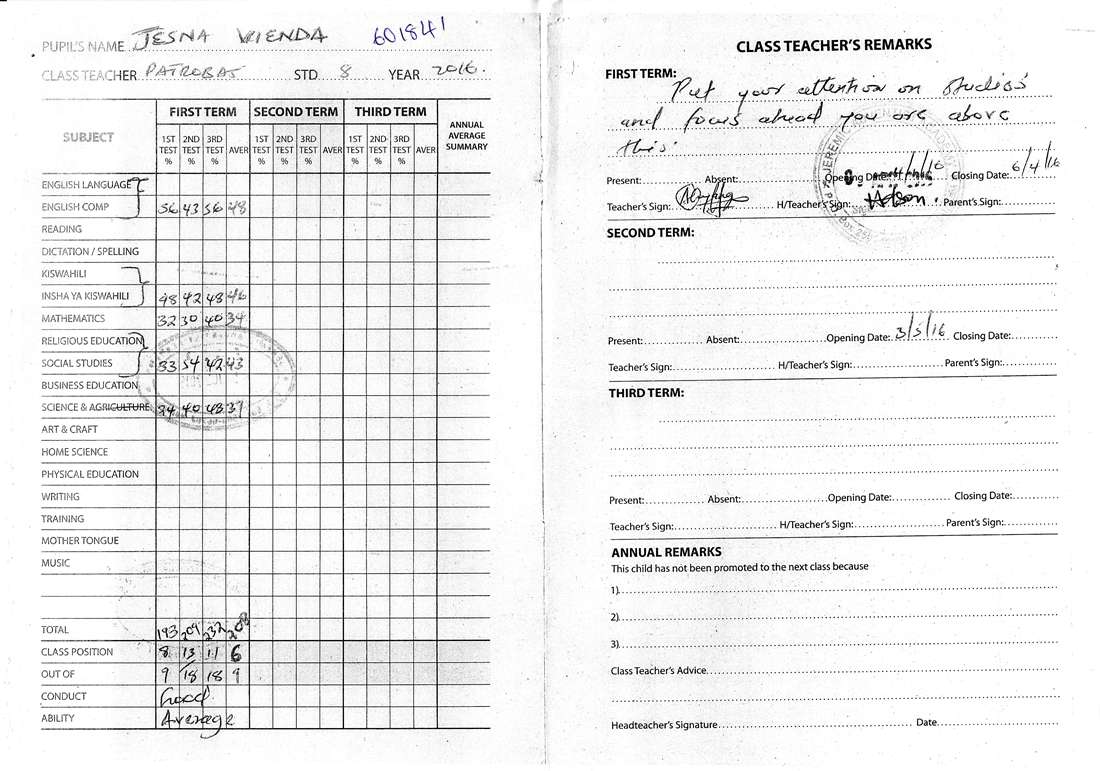 PUPIL'S NAME JESNA WIENDA 601841
CLASS TEACHER PATROBAS STD 8 YEAR 2016.
SUBJECT FIRST TERM SECOND TERM THIRD TERM ANNUAL AVERAGE SUMMARY
1ST TEST % 2ND TEST % 3RD TEST % AVER 1ST TEST % 2ND TEST % 3RD TEST % AVER 1ST TEST % 2ND TEST % 3RD TEST % AVER
ENGLISH LANGUAGE
ENGLISH COMP 56 43 56 48
READING
DICTATION / SPELLING
KISWAHILI
INSHA YA KISWAHILI 48 42 48 46
MATHEMATICS 32 30 40 34
RELIGIOUS EDUCATION
SOCIAL STUDIES 33 54 42 43
BUSINESS EDUCATION
SCIENCE & AGRICULTURE 24 40 48 37
ART & CRAFT
HOME SCIENCE
PHYSICAL EDUCATION
WRITING
TRAINING
MOTHER TONGUE
MUSIC
TOTAL 193 209 232 208
CLASS POSITION 8 13 11 6
OUT OF 9 18 18 9
CONDUCT Good
ABILITY Average
CLASS TEACHER'S REMARKS
FIRST TERM:
Put your attention on studies
and focus ahead you are above
this.
Present: Absent: Opening Date: Closing Date: 6/4/16
Teacher's Sign: H/Teacher's Sign: Parent's Sign:
SECOND TERM:
Present: Absent: Opening Date: 3/5/16 Closing Date:
Teacher's Sign: H/Teacher's Sign: Parent's Sign:
THIRD TERM:
Present: Absent: Opening Date: Closing Date:
Teacher's Sign: H/Teacher's Sign: Parent's Sign:
ANNUAL REMARKS
This child has not been promoted to the next class because
1)
2)
3)
Class Teacher's Advice
Headteacher's Signature Date